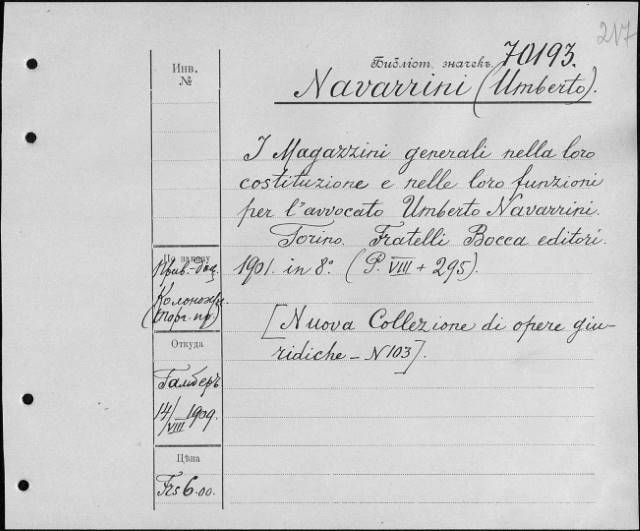 217
Библіот. значекъ 70193.
Navarrini (Umberto).
Инв.
№
I Magazzini generali nella loro
costituzione e nelle loro funzioni
per l'avvocato Umberto Navarrini.
Torino. Fratelli Bocca editori.
1901. in 8°. (P. VIII + 295).
[Nuova Collezione di opere giu-
ridiche - N 103].
По заказу
Прив.-Доц.
(Торг. пр.)
Откуда
Гамберъ
14/VIII 1909.
Цѣна
Frs 6.00.